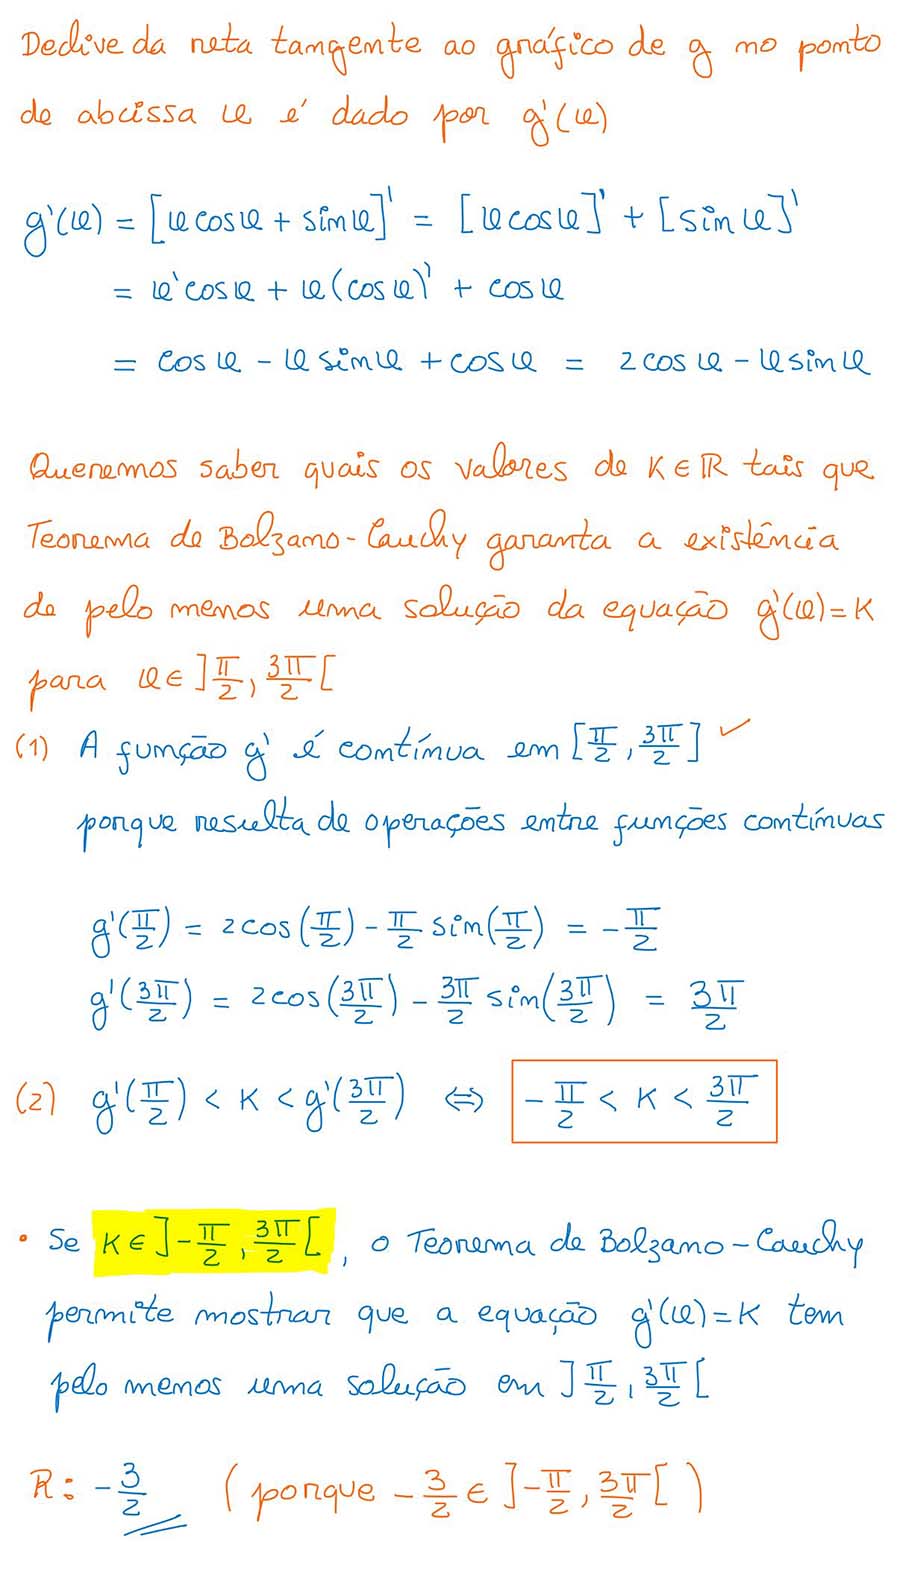 Declive da reta tangente ao gráfico de g no ponto
de abcissa x é dado por g'(x)
g'(x) = [x cos x + sin x]' = [x cos x]' + [sin x]'
= x' cos x + x (cos x)' + cos x
= cos x - x sin x + cos x = 2 cos x - x sin x
Queremos saber quais os valores de K ∈ ℝ tais que
Teorema de Bolzano-Cauchy garanta a existência
de pelo menos uma solução da equação g'(x) = K
para x ∈ ]π/2, 3π/2[
(1) A função g' é contínua em [π/2, 3π/2] ✓
porque resulta de operações entre funções contínuas
g'(π/2) = 2cos(π/2) - π/2 sin(π/2) = -π/2
g'(3π/2) = 2cos(3π/2) - 3π/2 sin(3π/2) = 3π/2
(2) g'(π/2) < K < g'(3π/2) ⇔ -π/2 < K < 3π/2
• Se K ∈ ]-π/2, 3π/2[, o Teorema de Bolzano-Cauchy
permite mostrar que a equação g'(x) = K tem
pelo menos uma solução em ]π/2, 3π/2[
R: -3/2 (porque -3/2 ∈ ]-π/2, 3π/2[)